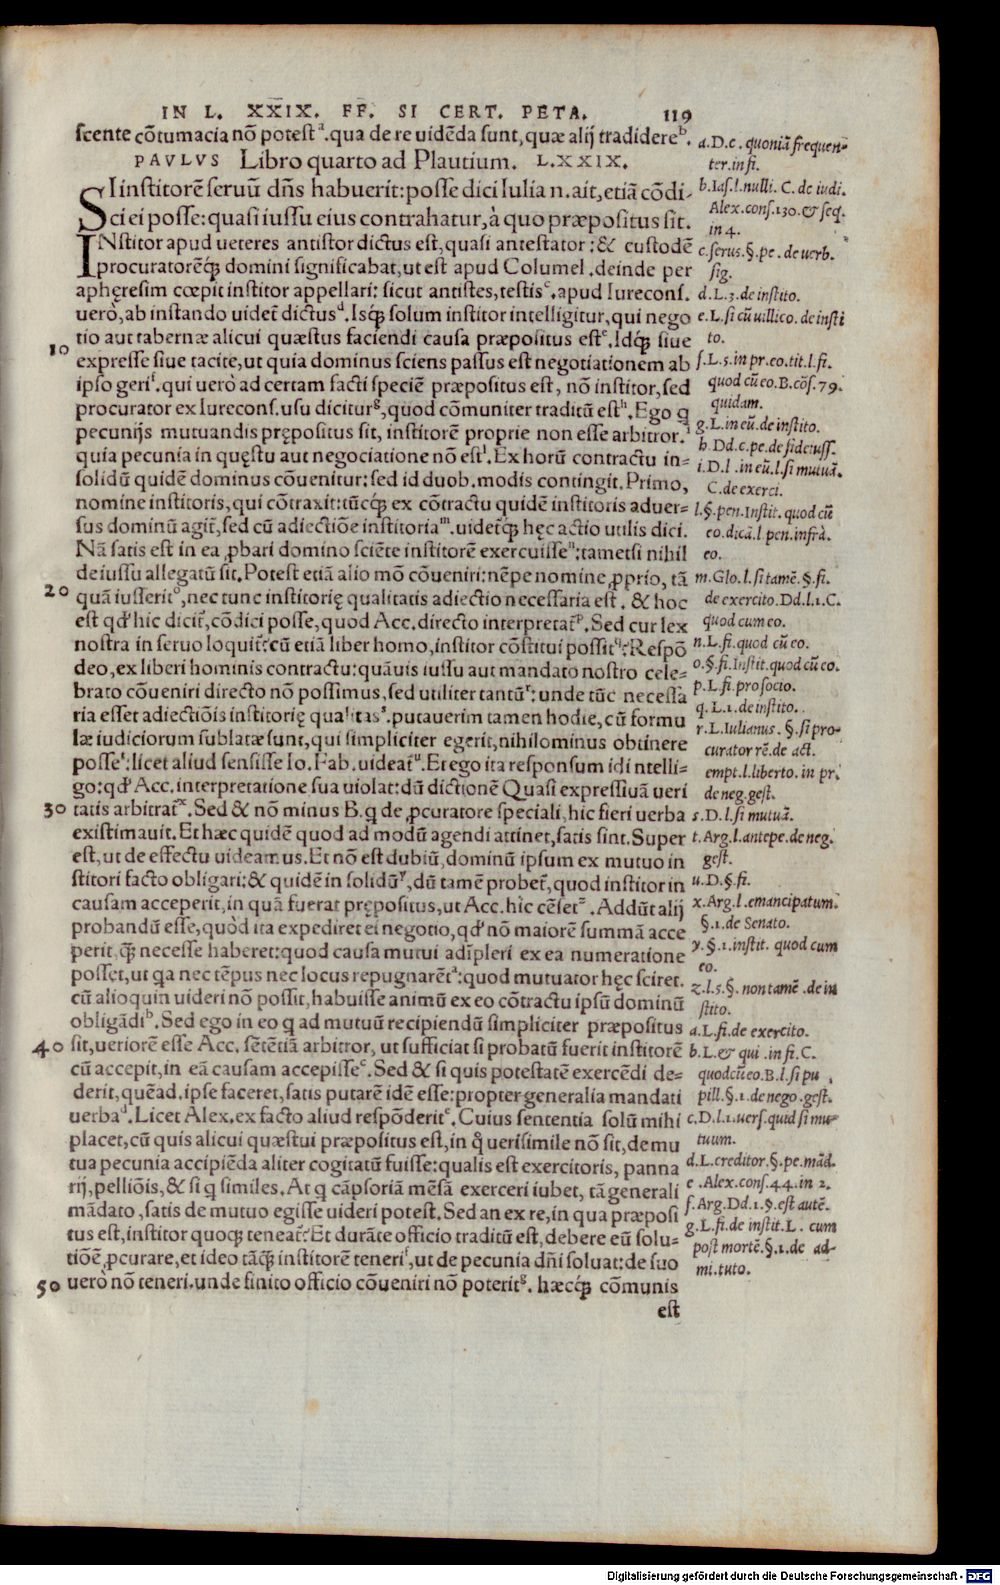 IN L. XXIX. FF. SI CERT. PETA. 119
scente cõtumacia nõ potest a. qua de re uidẽda sunt, quæ alij tradidere b.
PAVLVS Libro quarto ad Plautium. L.XXIX.
SI institorẽ seruũ dñs habuerit: posse dici Iulia n. ait, etiã cõdi-
ci ei posse: quasi iussu eius contrahatur, à quo præpositus sit.
INstitor apud ueteres antistor dictus est, quasi antestator: & custodẽ
procuratorẽq; domini significabat, ut est apud Columel. deinde per
aphęresim cœpit institor appellari: sicut antistes, testis c. apud Iurecons.
uerò, ab instando uidet̃ dictus d. Isq; solum institor intelligitur, qui nego
tio aut tabernæ alicui quæstus faciendi causa præpositus est e. Idq; siue
10
expresse siue tacite, ut quia dominus sciens passus est negotiationem ab
ipso geri f. qui uerò ad certam facti speciẽ præpositus est, nõ institor, sed
procurator ex Iurecons. usu dicitur g, quod cõmuniter traditũ est h. Ego q
pecunijs mutuandis prępositus sit, institorẽ proprie non esse arbitror. i
quia pecunia in quęstu aut negociatione nõ est l. Ex horũ contractu in-
solidũ quidẽ dominus cõuenitur: sed id duob. modis contingit. Primo,
nomine institoris, qui cõtraxit: tũcq; ex cõtractu quidẽ institoris aduer-
sus dominũ agit̃, sed cũ adiectiõe institoria m. uidet̃q; hęc actio utilis dici.
Nã satis est in ea ꝓbari domino sciẽte institorẽ exercuisse n: tametsi nihil
de iussu allegatũ sit. Potest etiã alio mõ cõueniri: nẽpe nomine ꝓprio, tã
20
quã iusserit o, nec tunc institorię qualitatis adiectio necessaria est. & hoc
est qđ hic dicit̃, cõdici posse, quod Acc. directo interpretat̃ p. Sed cur lex
nostra in seruo loquit̃: cũ etiã liber homo, institor cõstitui possit q: Respõ
deo, ex liberi hominis contractu: quãuis iussu aut mandato nostro cele-
brato cõueniri directo nõ possimus, sed utiliter tantũ r: unde tũc necessa
ria esset adiectiõis institorię qualitas s. putauerim tamen hodie, cũ formu
læ iudiciorum sublatæ sunt, qui simpliciter egerit, nihilominus obtinere
posse t: licet aliud sensisse Io. Fab. uideat̃ u. Et ego ita responsum idi ntelli-
go: qđ Acc. interpretatione sua uiolat: dũ dictionẽ Quasi expressiuã ueri
30
tatis arbitrat̃ x. Sed & nõ minus B. q de ꝓcuratore speciali, hic fieri uerba
existimauit. Et hæc quidẽ quod ad modũ agendi attinet, satis sint. Super
est, ut de effectu uideamus. Et nõ est dubiũ, dominũ ipsum ex mutuo in
stitori facto obligari: & quidẽ in solidũ y, dũ tamẽ probet̃, quod institor in
causam acceperit, in quã fuerat prępositus, ut Acc. hîc cẽset z. Addũt alij
probandũ esse, quòd ita expediret ei negotio, qđ nõ maiorẽ summã acce
perit, q̃ necesse haberet: quod causa mutui adĩpleri ex ea numeratione
posset, ut qa nec tẽpus nec locus repugnarẽt a: quod mutuator hęc sciret.
cũ alioquin uideri nõ possit, habuisse animũ ex eo cõtractu ipsũ dominũ
obligãdi b. Sed ego in eo q ad mutuũ recipiendũ simpliciter præpositus
40
sit, ueriorẽ esse Acc. sẽtẽtiã arbitror, ut sufficiat si probatũ fuerit institorẽ
cũ accepit, in eã causam accepisse c. Sed & si quis potestatẽ exercẽdi de-
derit, quẽad. ipse faceret, satis putarẽ idẽ esse: propter generalia mandati
uerba d. Licet Alex. ex facto aliud respõderit e. Cuius sententia solũ mihi
placet, cũ quis alicui quæstui præpositus est, in q̊ uerisimile nõ sit, de mu
tua pecunia accipiẽda aliter cogitatũ fuisse: qualis est exercitoris, panna
rij, pelliõis, & si q similes. At q cãpsoriã mẽsã exerceri iubet, tã generali
mãdato, satis de mutuo egisse uideri potest. Sed an ex re, in qua præposi
tus est, institor quoq; teneat̃: Et durãte officio traditũ est, debere eũ solu-
tiõẽ ꝓcurare, et ideo tãq̃ institorẽ teneri f, ut de pecunia dñi soluat: de suo
50
uerò nõ teneri. unde finito officio cõueniri nõ poterit g. hæcq; cõmunis
est
a. D. c. quoniã frequen-
ter. in fi.
b. Ias. l. nulli. C. de iudi.
Alex. cons. 130. & seq.
in 4.
c. serus. §. pe. de uerb.
sig.
d. L. 3. de instito.
e. L. si cũ uillico. de insti
to.
f. L. 5. in pr. eo. tit. l. fi.
quod cũ eo. B. cõs. 79.
quidam.
g. L. in eũ. de instito.
h. Dd. c. pe. de fideiuss.
i. D. l. in eũ. l. si mutuã.
C. de exerci.
l. §. pen. Instit. quod cũ
eo. dicã. l pen. infrà.
eo.
m. Glo. l. si tamẽ. §. fi.
de exercito. Dd. l. 1. C.
quod cum eo.
n. L. fi. quod cũ eo.
o. §. fi. Instit. quod cũ eo.
p. L. fi. pro socio.
q. L. 1. de instito.
r. L. Iulianus. §. si pro-
curator rẽ. de act.
empt. l. liberto. in pr.
de neg. gest.
s. D. l. si mutuã.
t. Arg. l. antepe. de neg.
gest.
u. D. §. fi.
x. Arg. l. emancipatum.
§. 1. de Senato.
y. §. 1. instit. quod cum
eo.
z. l. 5. §. non tamẽ. de in
stito.
a. L. fi. de exercito.
b. L. & qui. in fi. C.
quod cũ eo. B. l. si pu
pill. §. 1. de nego. gest.
c. D. l. 1. uers. quid si mu-
tuum.
d. L. creditor. §. pe. mãd.
e. Alex. cons. 44. in 2.
f. Arg. Dd. 1. §. est autẽ.
g. L. fi. de instit. L. cum
post mortẽ. §. 1. de ad-
mi. tuto.
Digitalisierung gefördert durch die Deutsche Forschungsgemeinschaft - DFG